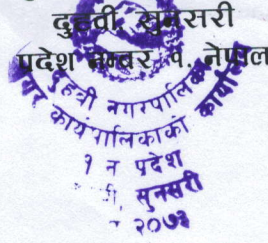 दुहवी, सुनसरी
प्रदेश नम्बर १. नेपाल
दुहवी नगरपालिका
नगर कार्यपालिकाको कार्यालय
१ न प्रदेश
सुनसरी
२०७३